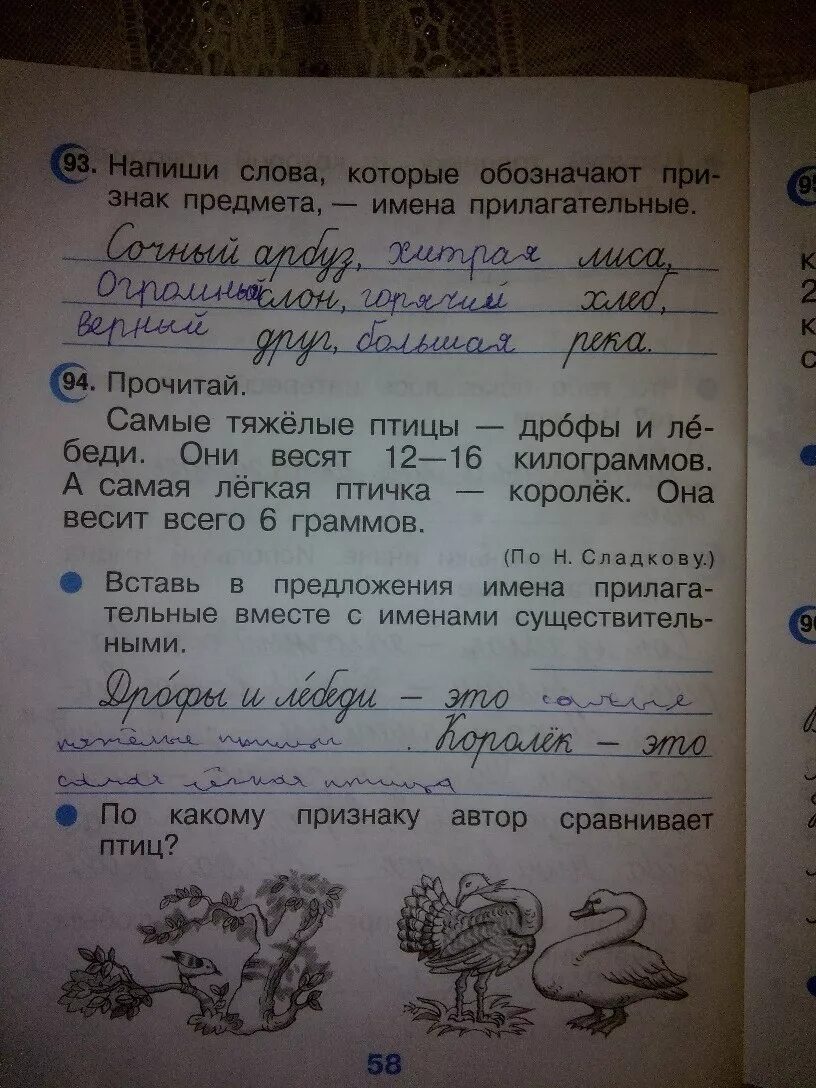 93. Напиши слова, которые обозначают при-
знак предмета, — имена прилагательные.
Сочный арбуз, хитрая лиса,
Огромный слон, горячий хлеб,
верный друг, большая река.
94. Прочитай.
Самые тяжёлые птицы — дро́фы и ле́-
беди. Они весят 12—16 килограммов.
А самая лёгкая птичка — королёк. Она
весит всего 6 граммов.
(По Н. Сладкову.)
Вставь в предложения имена прилага-
тельные вместе с именами существитель-
ными.
Дро́фы и ле́беди – это самые
тяжёлые птицы . Королёк – это
самая лёгкая птица
По какому признаку автор сравнивает
птиц?
58